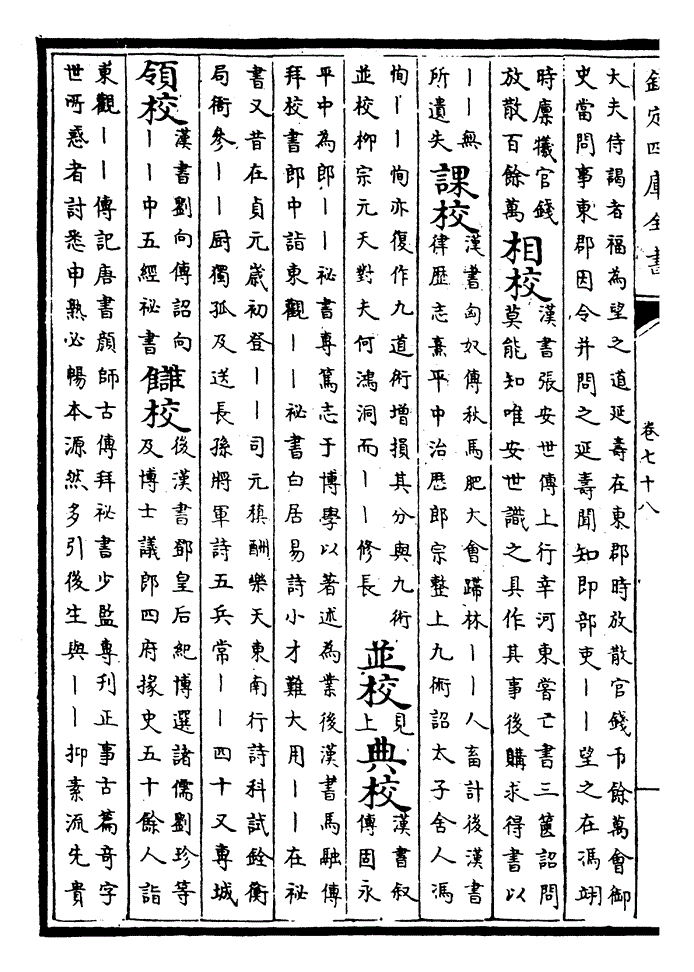 欽定四庫全書
卷七十八
大夫侍謁者福為望之道延壽在東郡時放散官錢千餘萬會御
史當問事東郡因令并問之延壽聞知即部吏丨丨望之在馮翊
時廩犧官錢
放散百餘萬
相校
漢書張安世傳上行幸河東嘗亡書三篋詔問
莫能知唯安世識之具作其事後購求得書以
丨丨無
所遺失
課校
漢書匈奴傳秋馬肥大會蹛林丨丨人畜計後漢書
律歷志熹平中治歷郎宗整上九術詔太子舍人馮
恂丨丨恂亦復作九道術增損其分與九術
並校柳宗元天對夫何鴻洞而丨丨修長
並校
見
上
典校
漢書叙
傳固永
平中為郎丨丨祕書專篤志于博學以著述為業後漢書馬融傳
拜校書郎中詣東觀丨丨祕書白居易詩小才難大用丨丨在祕
書又昔在貞元歲初登丨丨司元稹酬樂天東南行詩科試銓衡
局衙參丨丨厨獨孤及送長孫將軍詩五兵常丨丨四十又專城
領校
漢書劉向傳詔向
丨丨中五經祕書
讎校
後漢書鄧皇后紀博選諸儒劉珍等
及博士議郎四府掾史五十餘人詣
東觀丨丨傳記唐書顔師古傳拜祕書少監專刋正事古篇奇字
世所惑者討悉申熟必暢本源然多引後生與丨丨抑素流先貴